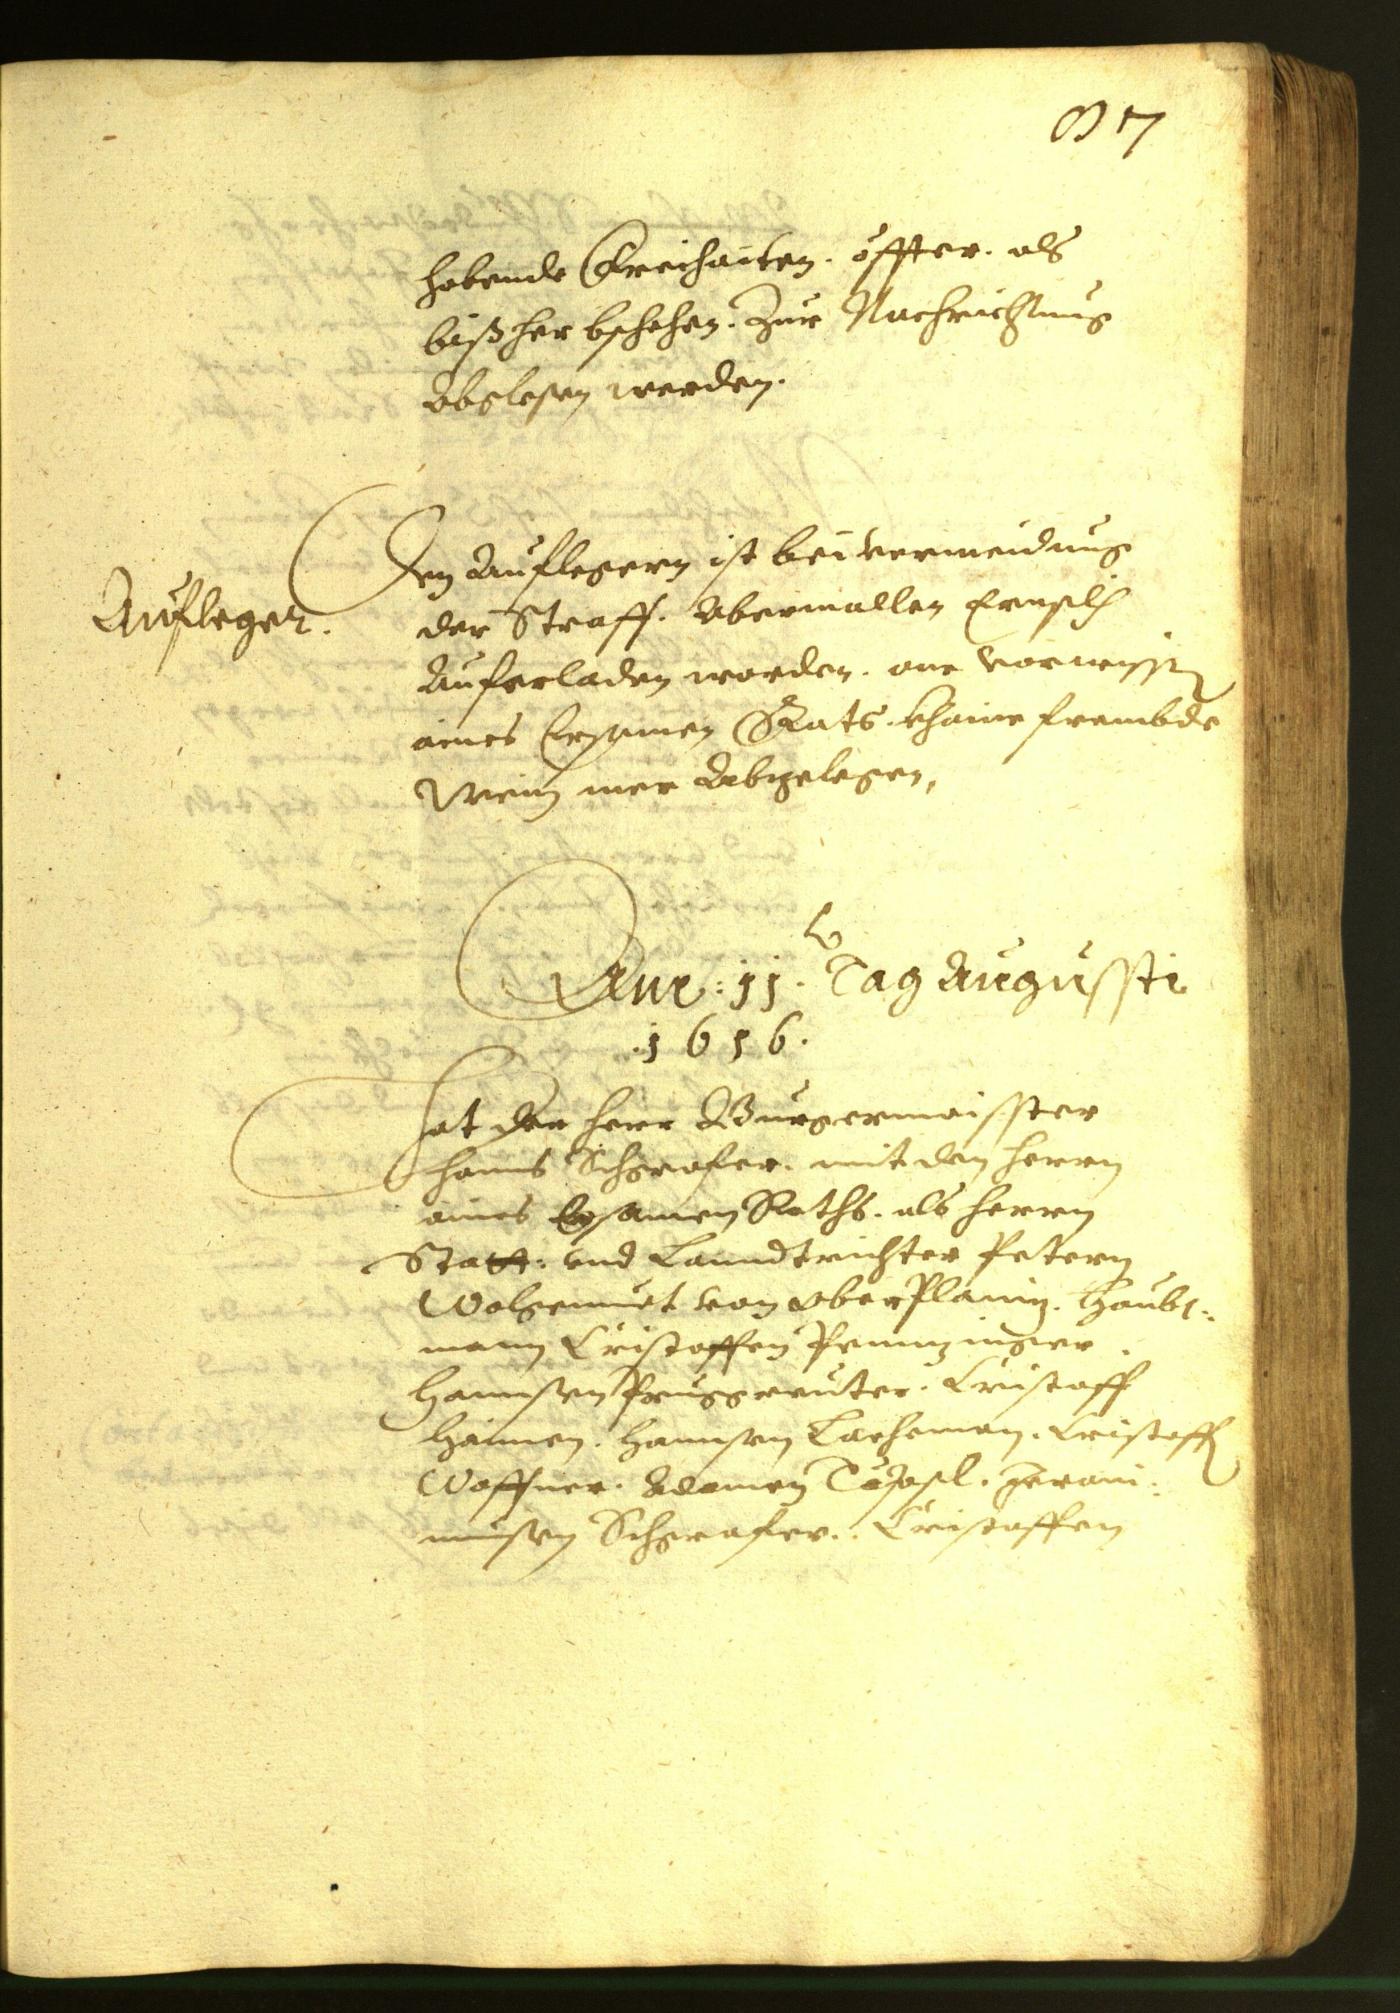 87
habende Freihaiten. öffter. als
bißher bschehen. Zur Nachrichtung
Abglesen werden.
Den Auflegern ist bei vermeidung
Aufleger.
der Straff. Abermallen Ernstlich
Auferladen worden. one Vorwissen
aines Ersamen Rats. khaine frembde
Wein mer Abzelegen,
Am: 11. Tag Augussti
.1616.
Hat der Herr Burgermaisster
Hanns Schgrafer. mit den Herrn
aines Ersamen Raths. als Herrn
Statt: und Lanndtrichter Petern
Wolgemuet von Oberplaniz. Haubt:
mann Cristoffen Penninger.
Hannsen Pruggreuter. Cristoff
Haimen. Hannsen Lacheman. Cristoff
Waffner. Adamen Jeroni:
musen Schgrafer. Cristoffen